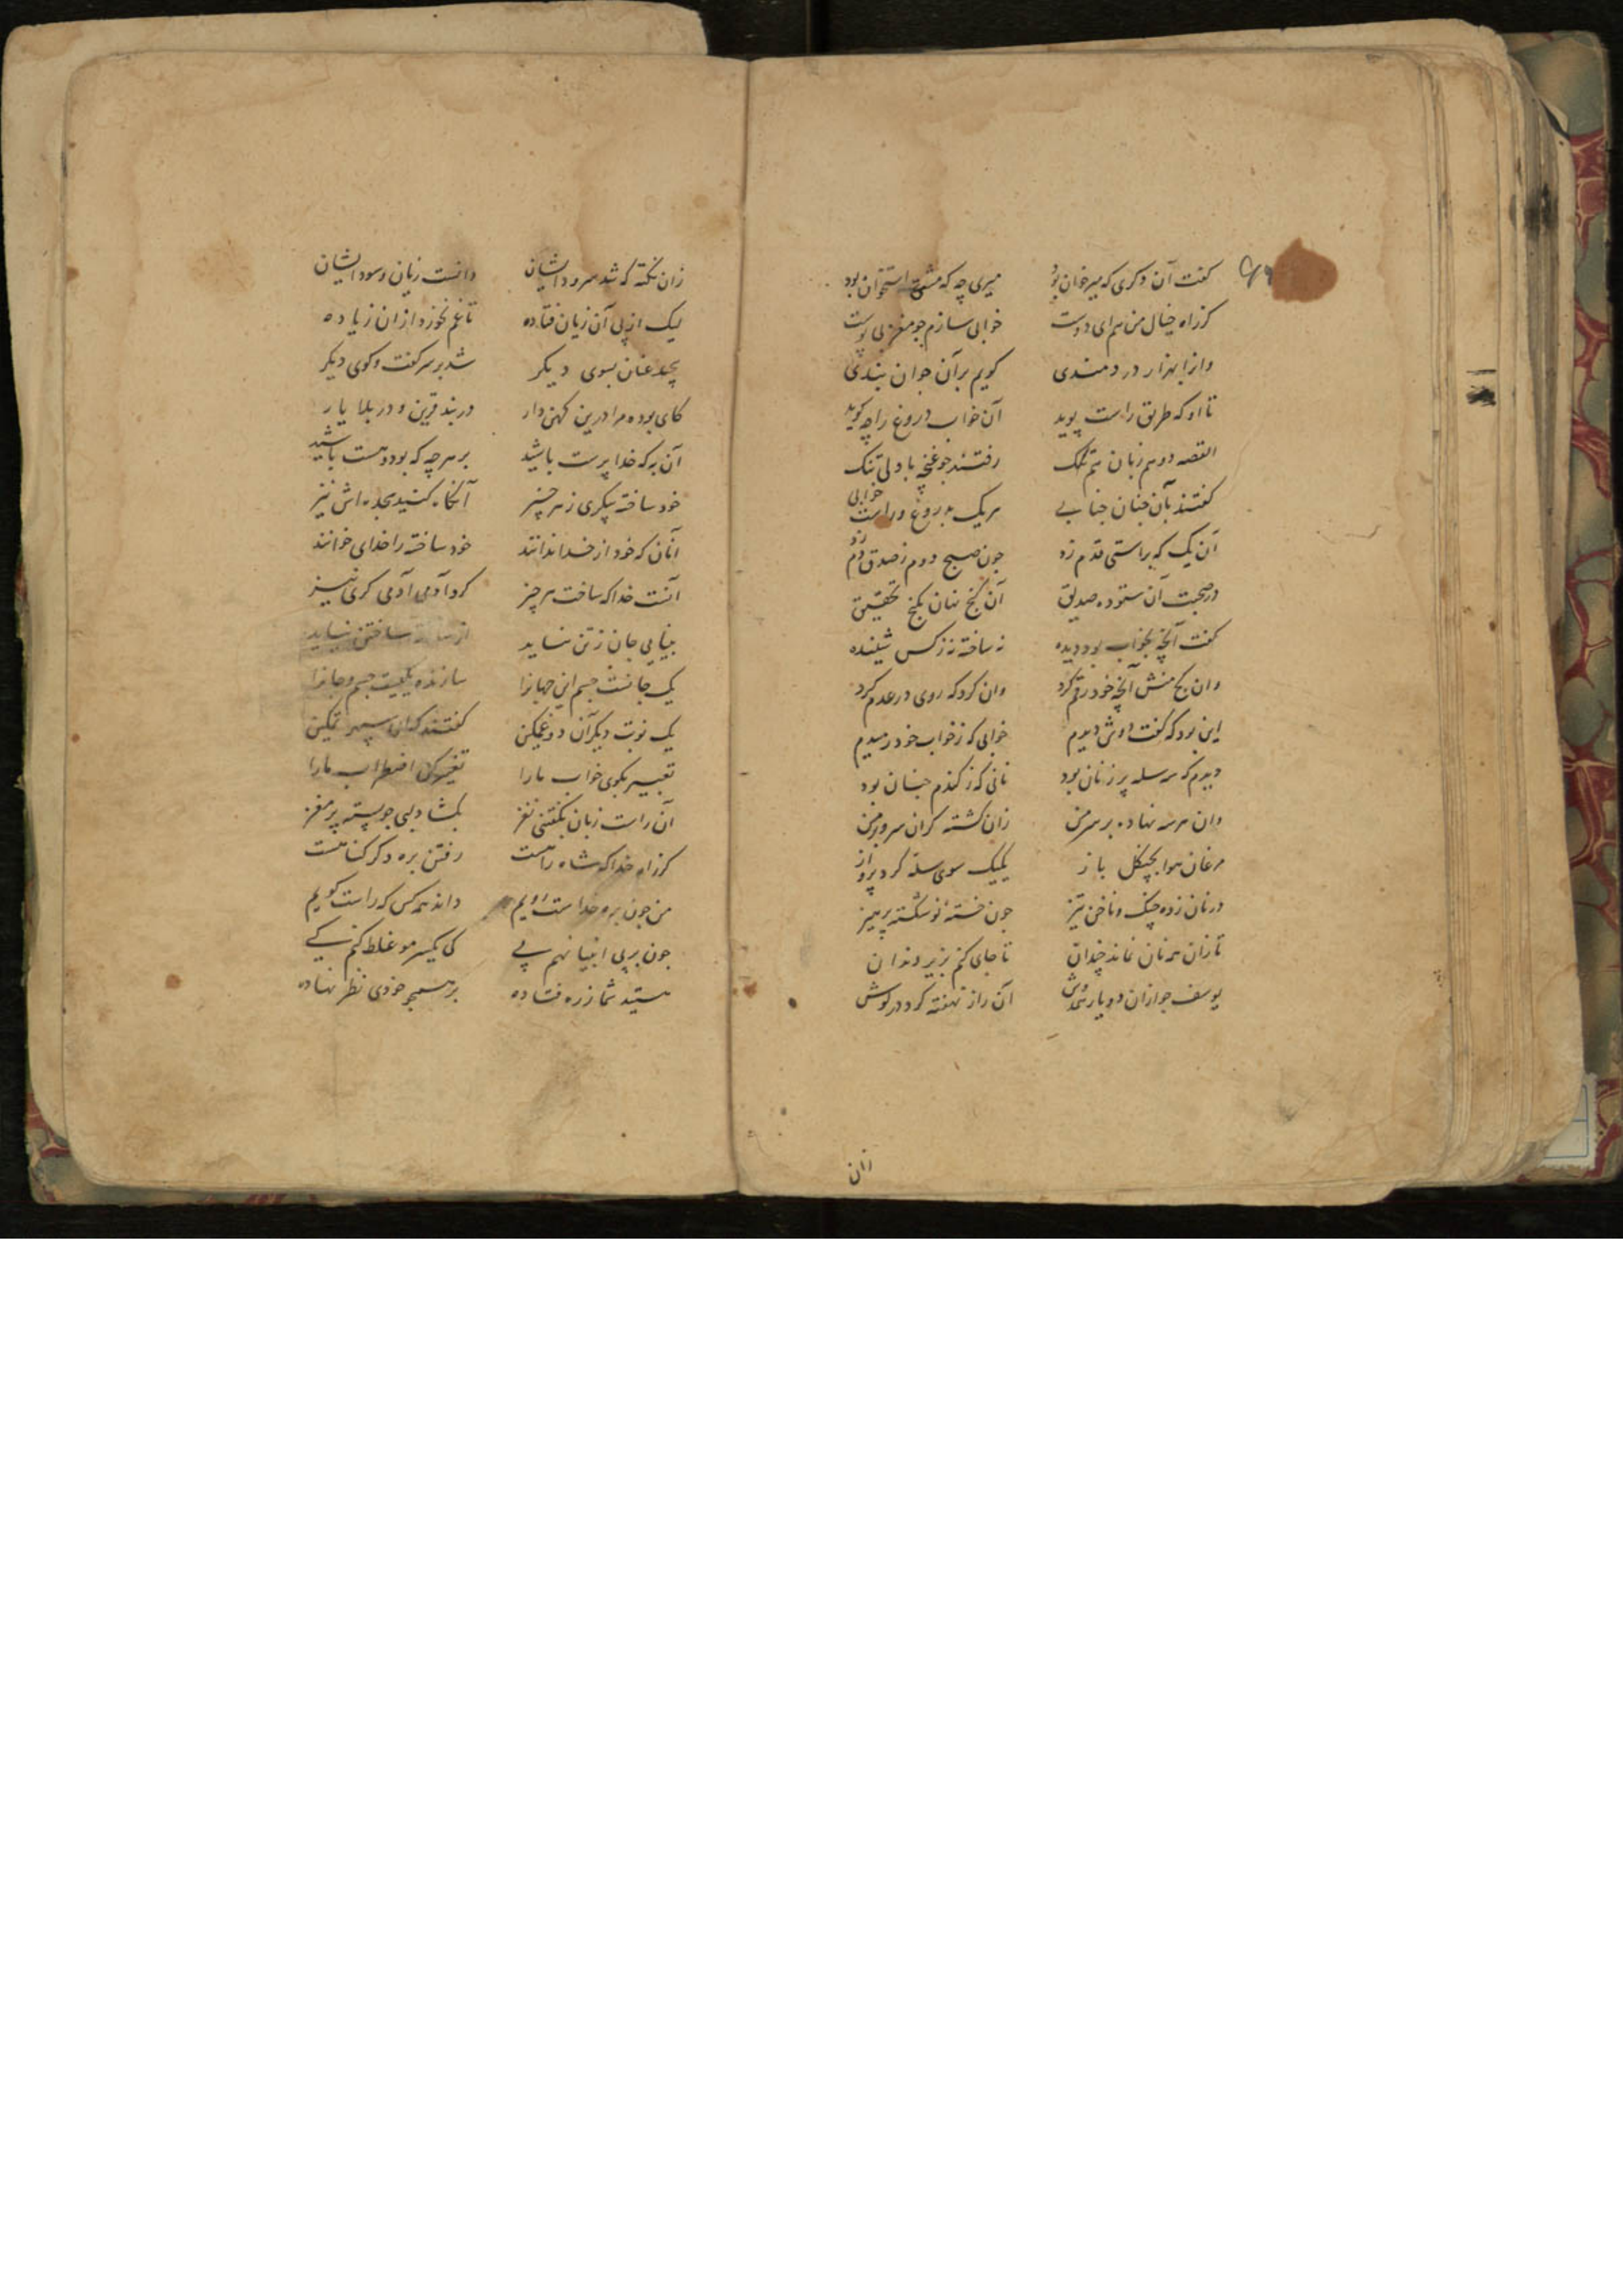 گفت آن دگری که میرخوان بود میری چه که مشتی استخوان بود
کز راه خیال من هم ای دوست خوابی سازم جو مغز بی پوست
وانرا بهزار دردمندی گویم بر آن جوان بندی
تا او که طریق راست پوید آن خواب دروغ را چه گوید
القصه دو هم زبان رفتند جو غنچه با دلی تنک
گفتند بآن جنان جنابی هر یک بدروغ و راست خوابی
آن یک که براستی قدم زد جون صبح دوم ز صدق دم زد
در صحبت آن ستوده صدیق آن گنج نهان بکنج تحقیق
گفت آنچه بخواب بود دیده نه ساخته نه ز کس شنیده
وان کج منش آنچه خود رقم کرد وان کرد که روی در عدم کرد
این بود که گفت دوش دیدم خوابی که ز خواب خود رمیدم
دیدم که سه سله پر ز نان بود نانی که ز گندم جنان بود
وان هر سه نهاده بر سر من زان گشته گران سر من
مرغان هوا بچنگل باز یک یک سوی سله کرد پرواز
در نان زده چنگ و ناخن تیز جون خسته نو شکسته پرهیز
تا زان همه نان نماند چندان تا جای کنم بزیر دندان
یوسف جو ازان دو یار آن راز نهفته کرد در گوش
زان
زان نکته که شد سرودایشان دانست زیان و سود ایشان
لیک از پی آن زیان فتاده تا غم نخورد ازان زیاده
پیچید عنان بسوی دیگر شد بر سر گفت و گوی دیگر
کای بوده مرا درین کهن دار در بند قرین و در بلا یار
آن به که خدا پرست باشید بر هر چه که بود و هست باشید
خود ساخته پیکری ز هر چیز آنگاه کنید سجده اش نیز
آنان که خود از خدا ندانند خود ساخته را خدای خوانند
آنست خدا که ساخت هر چیز کرد آدمی آدمی گری نیز
بینایی جان ز تن نیاید از ساخته ساختن نیاید
یک جانست جسم این جهانرا سازنده یکیست جسم و جانرا
یک نوبت دیگر آن دو غمگین گفتند که ای سپهر تمکین
تعبیر بگوی خواب ما را تغییر کن اضطراب ما را
آن راست زبان بگفتن نغز بگشاد لبی جو پسته پر مغز
کز راه خدا که شاه راهست رفتن بره دگر گناهست
من جون بره خداست رویم داند همه کس که راست گویم
جون بر پی انبیا نهم پی کی یکسر مو غلط کنم کی
هستید شما ز ره فتاده بر همچو خودی نظر نهاده